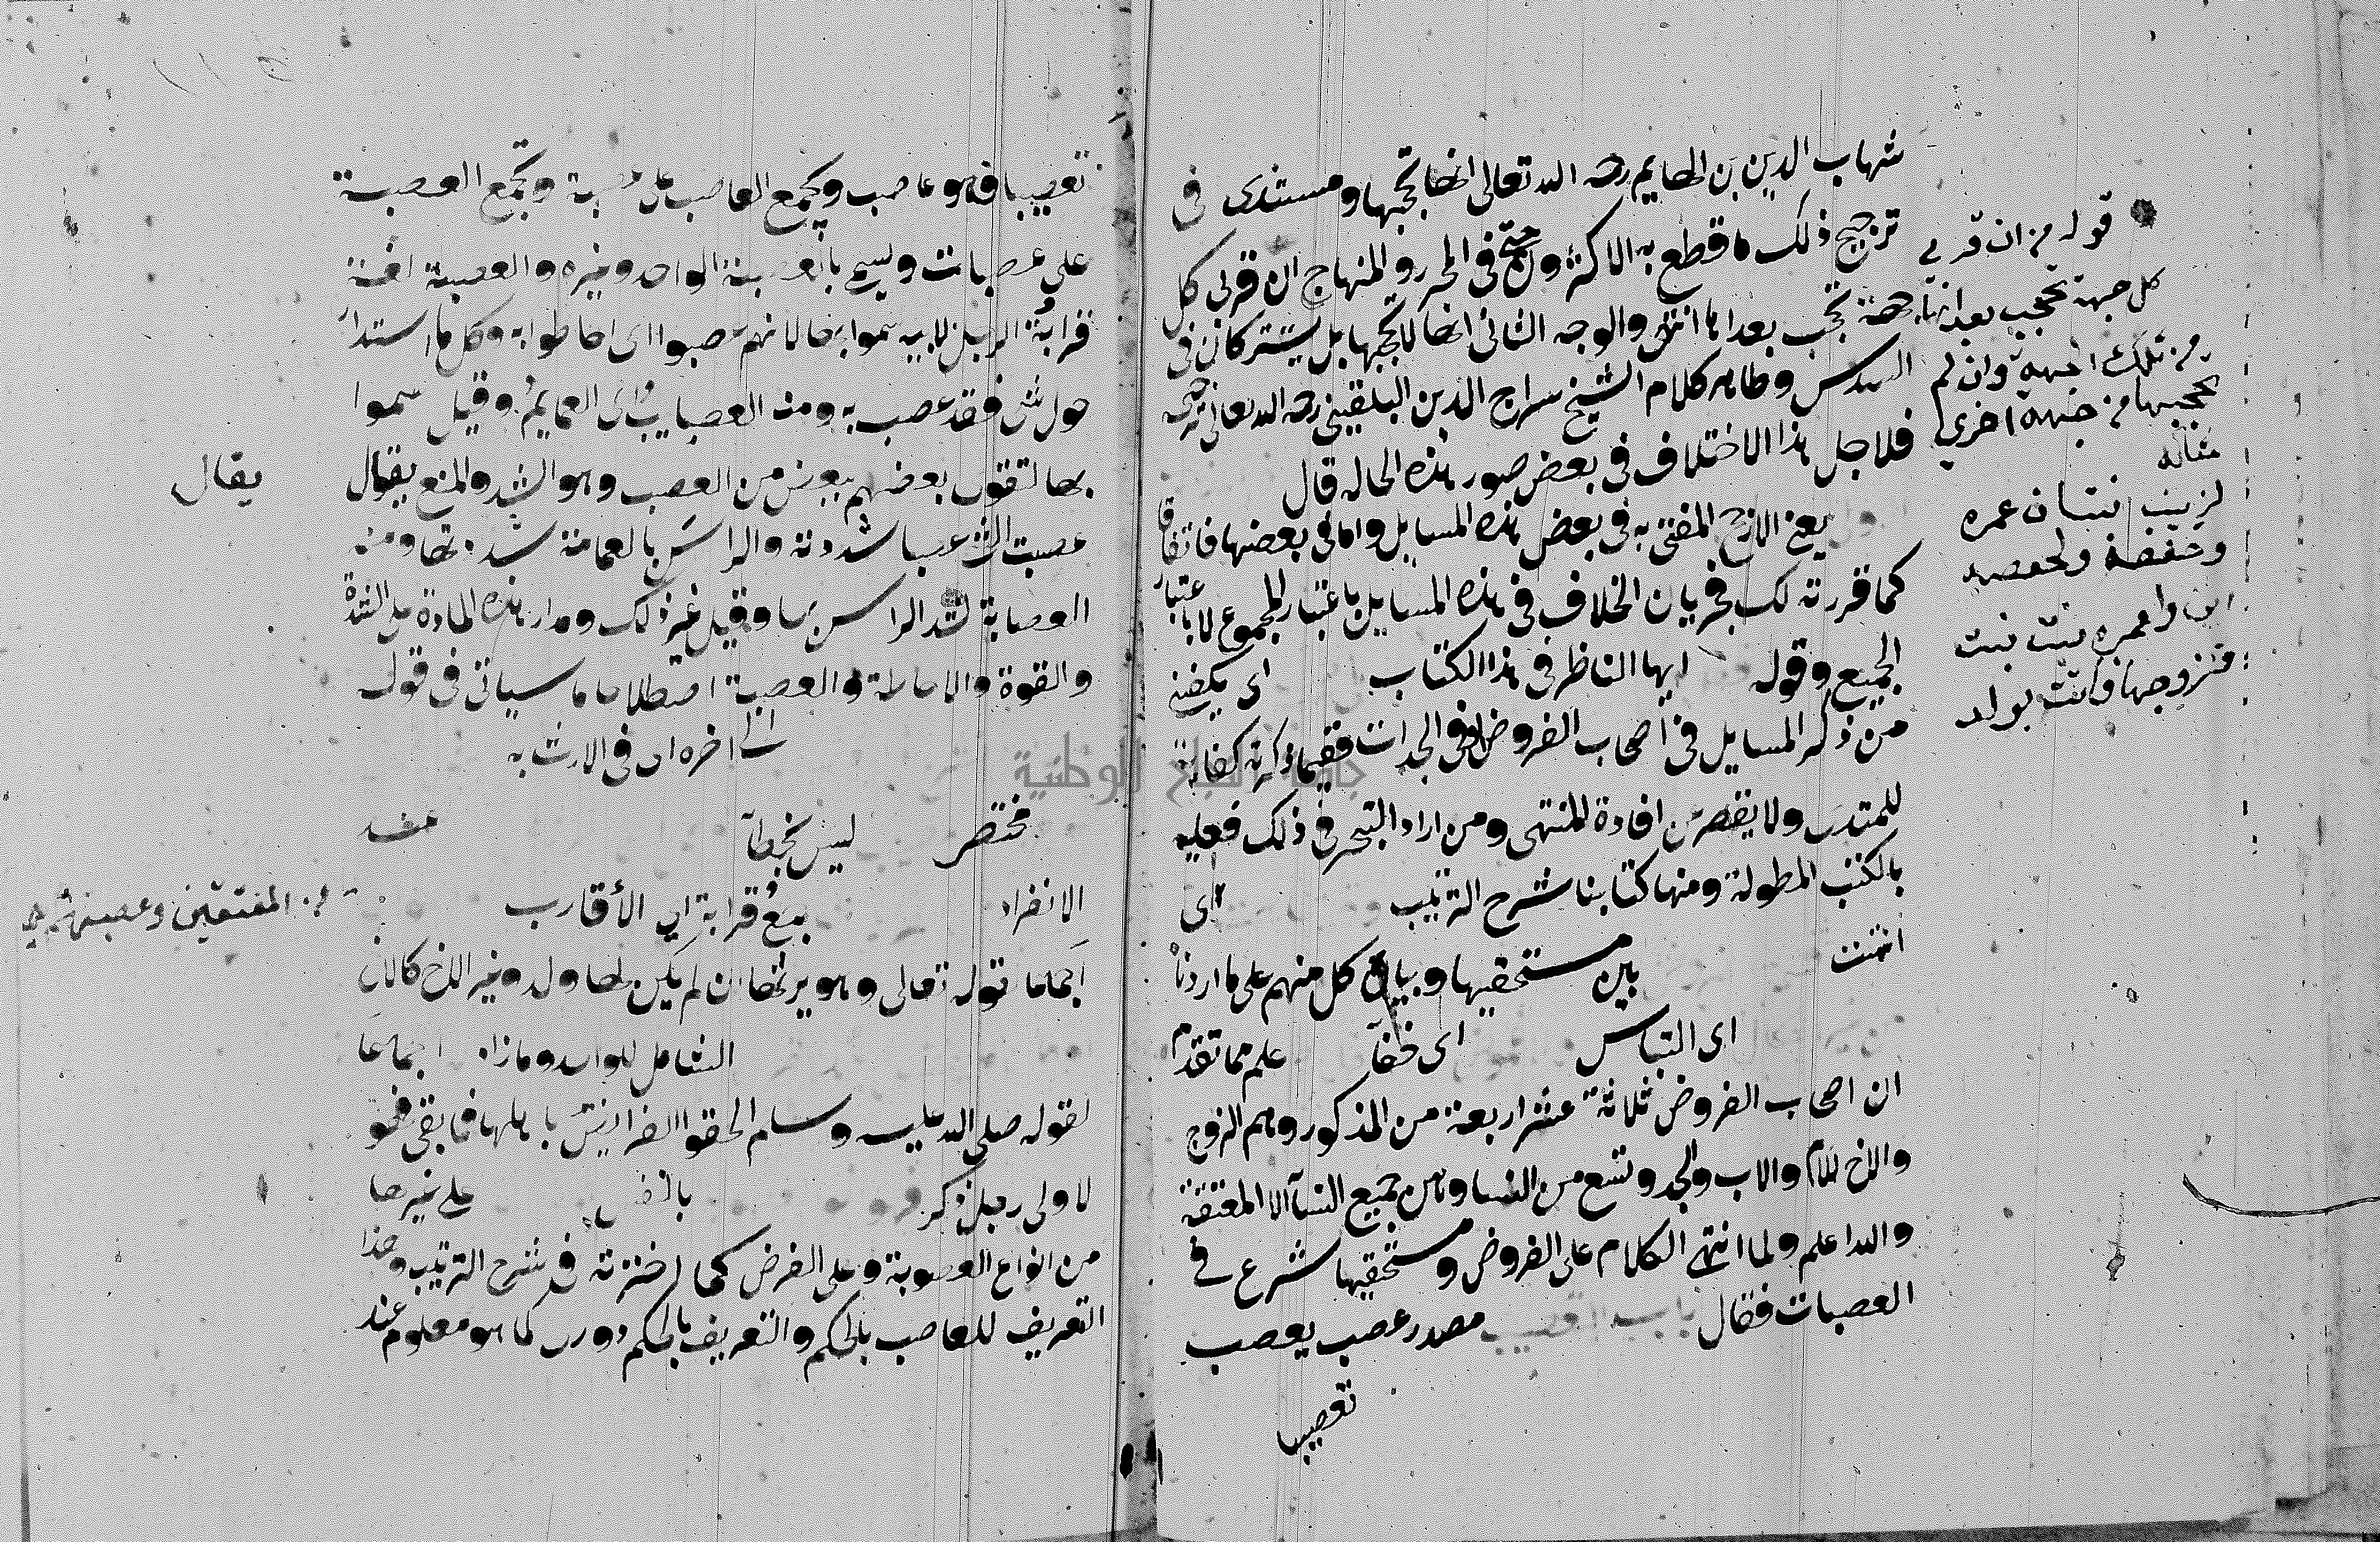 شهاب الدين بن الهايم رحمه الله تعالى انها تحجبها ومستندى فى
ترجيح ذلك ما قطع به الاكثرون حتى فى المحرر والمنهاج ان قربى كل
جهة تحجب بعداها انتهى والوجه الثانى انها لا تحجبها بل يشتركان فى
السدس وظاهر كلام الشيخ سراج الدين البلقينى رحمه الله تعالى
فلاجل هذا الاختلاف فى بعض صور هذه الحاله قال
يعنى الارجح المفتى به فى بعض هذه المسايل واما فى بعضها فاتفاقا
كما قررته لك فجريان الخلاف فى هذه المسايل باعتبار المجموع لا باعتبار
الجميع وقوله ايها الناظر فى هذا الكتاب اى يكفينى
من ذكر المسايل فى اصحاب الفروض وفى الجدات ففيما ذكرته كفاية
للمبتدى ولا يقصر عن افادة المنتهى ومن اراد التبحر فى ذلك فعليه
بالكتب المطولة ومنها كتابنا شرح الترتيب اى
انتهت بين مستحقيها وبيان كل منهم على ما اردنا
اى التباس اى خفآ علم مما تقدم
ان اصحاب الفروض ثلاثة عشر اربعة من الذكور وهم الزوج
والاخ للام والاب والجد وتسع من النسا وهن جميع النسآ الا المعتقة
والله اعلم ولما انتهى الكلام على الفروض ومستحقيها شرع فى
العصبات فقال باب التعصيب مصدر عصب يعصب
تعصيبا
قوله من ان قربى
كل جهة تحجب بعداها
من تلك الجهة وان لم
تحجبها من جهة اخرى
مثاله
لزينب بنتان عمره
وحفصة ولحفصه
ابن ولعمره بنت بنت
فتزوجها واتت بولد
تعصيبا فهو عاصب ويجمع العاصب على عصبة وتجمع العصبة
على عصبات ويسمى بالعصبة الواحد وغيره والعصبة لغة
قرابة الرجل لابيه سموا بها لانهم عصبوا اى احاطوا به وكل ما استدار
حول شى فقد عصب به ومنه العصايب اى العمايم وقيل سموا
بها لتقوى بعضهم ببعض من العصب وهو الشد والمنع يقال
عصبت الشى عصبا شددته والراس بالعمامة شددتها ومنه
العصابة لشد الراس بها وقيل غير ذلك ومدار هذه المادة على الشدة
والقوة والاحاطة والعصبة اصطلاحا ما سياتى فى قوله
الى اخره اى فى الارث به
مختصر ليس بخطآ عند
الانفراد قرابة اى الأقارب
اجماعا لقوله تعالى وهو يرثها ان لم يكن لها ولد وغير الاخ كالاخ
الشامل للواحد وما زاد اجماعا
لقوله صلى الله عليه وسلم الحقوا الفرايض باهلها فما بقى فهو
لاولى رجل ذكر بالنفس على غيرها
من انواع العصوبة وعلى الفرض كما اخترته فى شرح الترتيب وهذا
التعريف للعاصب بالحكم والتعريف بالحكم دورى كما هو معلوم عند
يقال
من المعتقين وعصبتهم
جامعة النجاح الوطنية